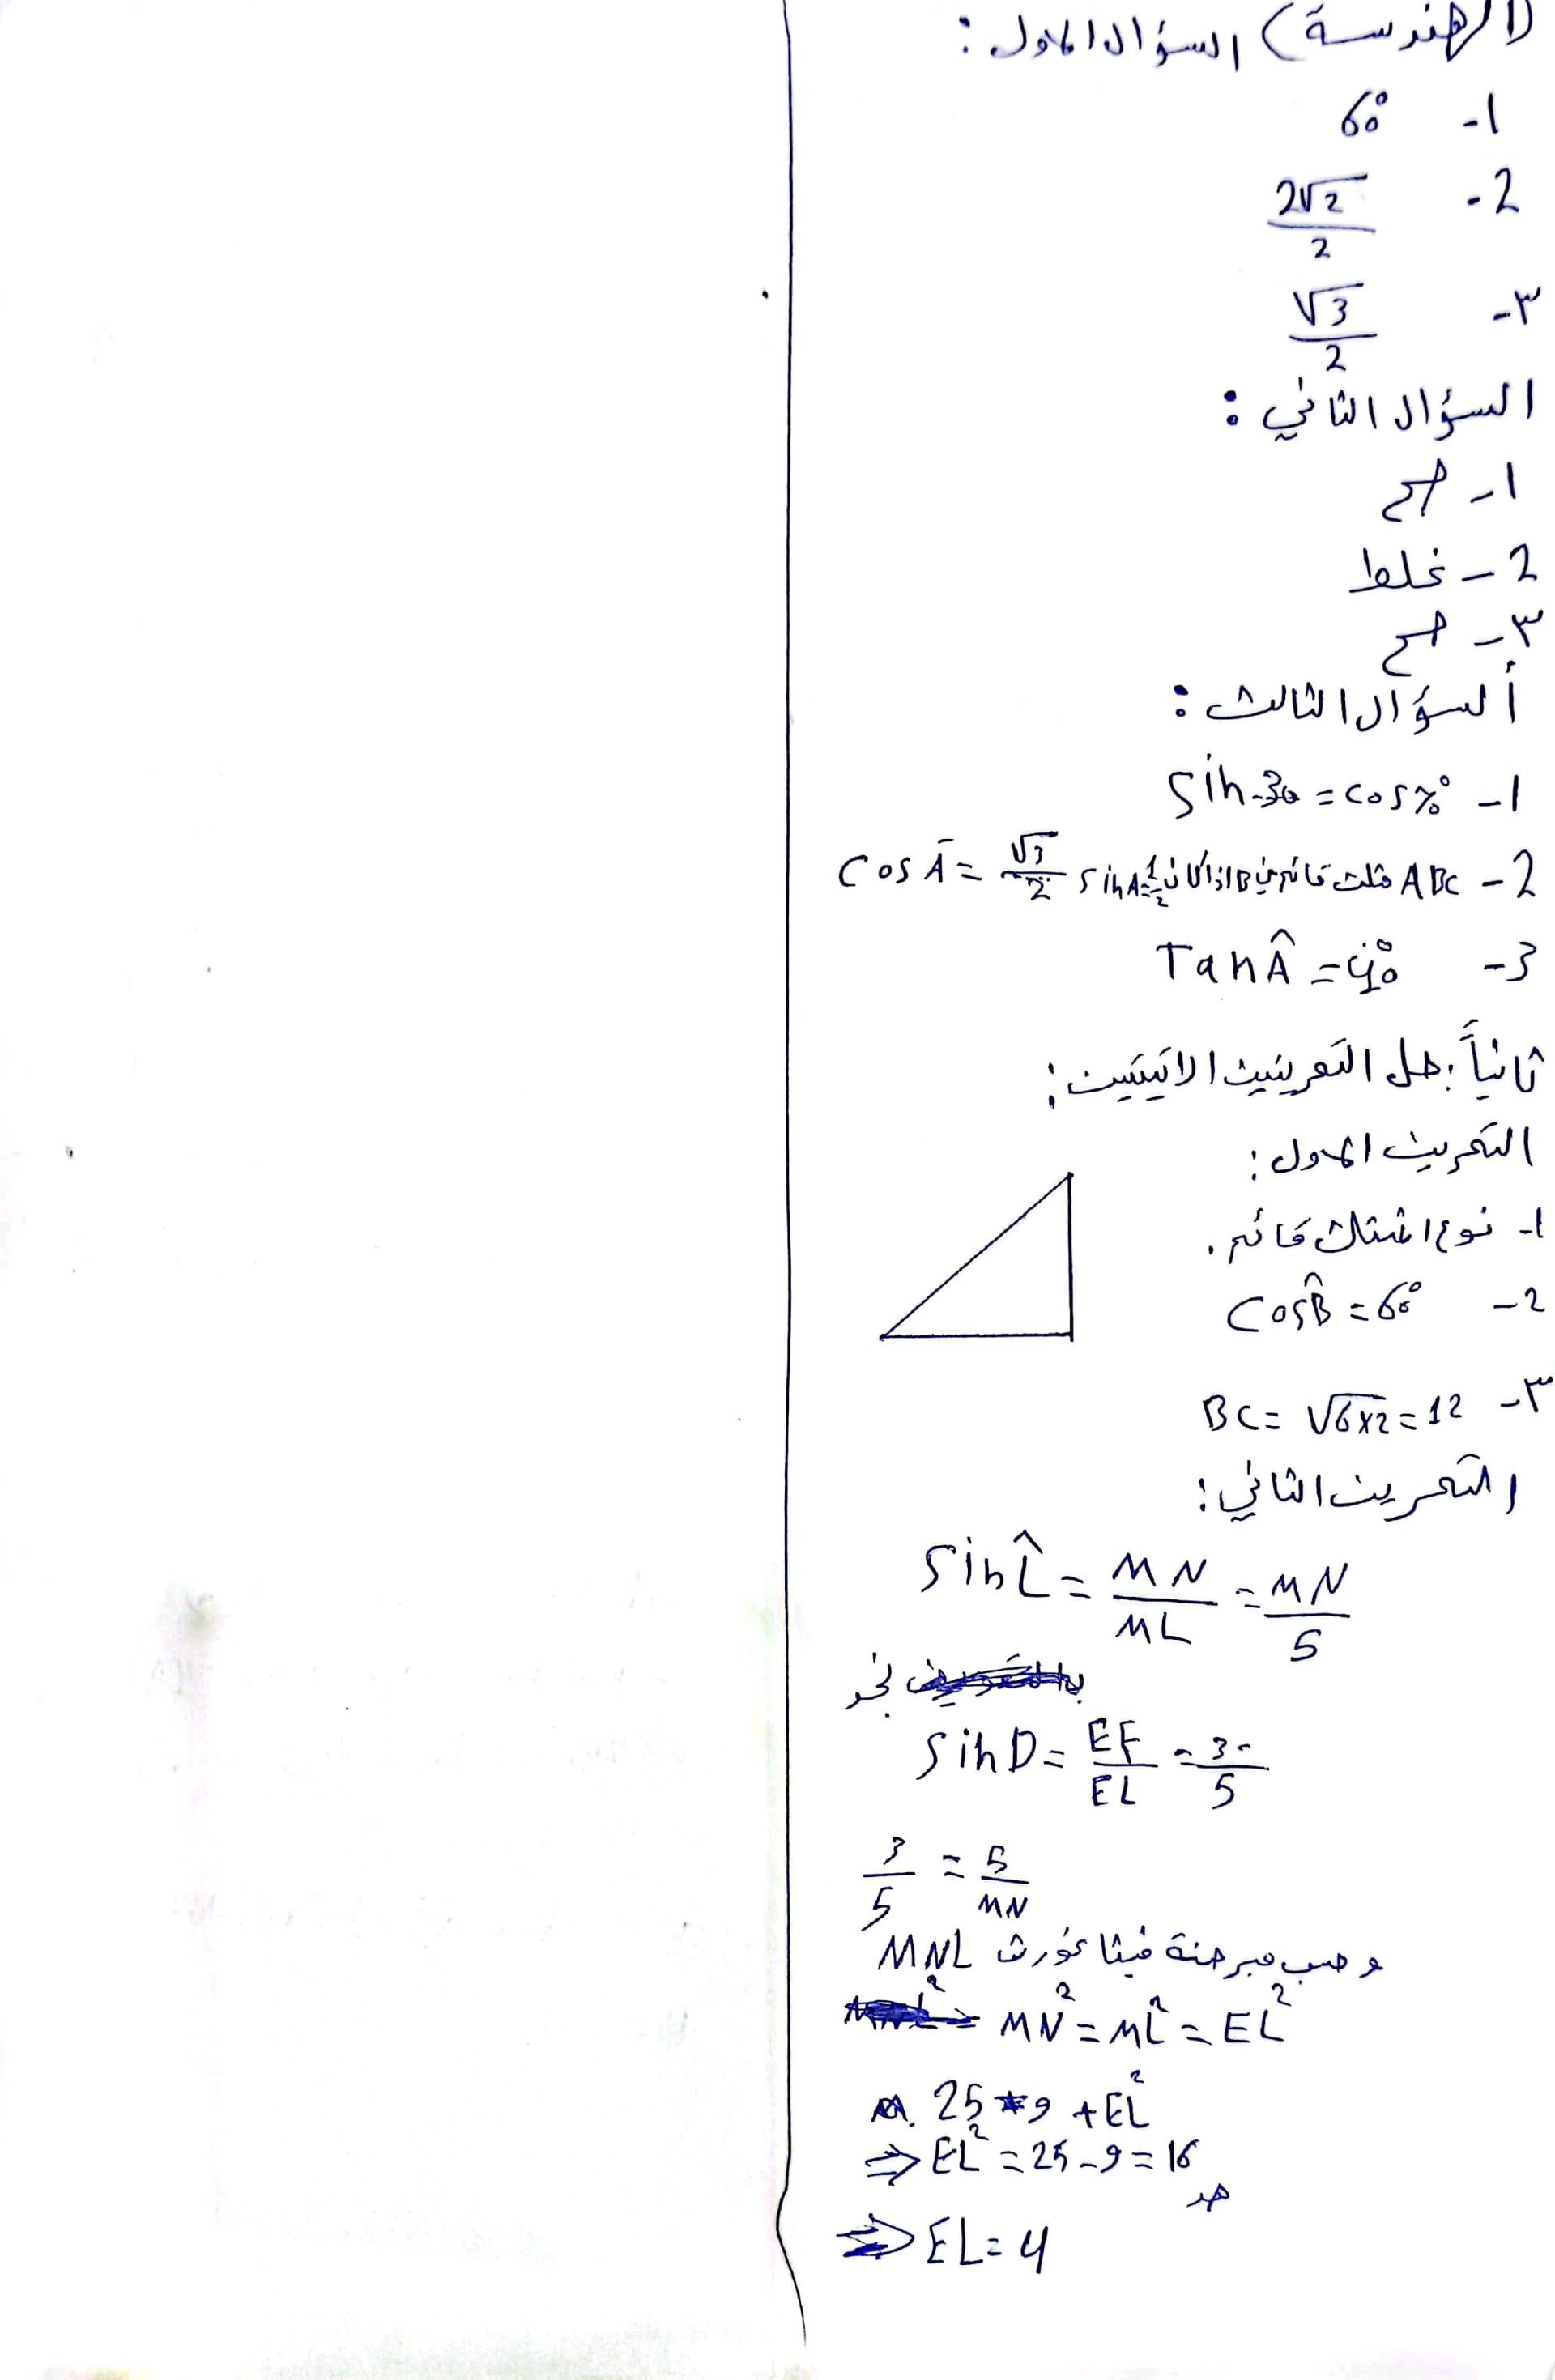 (الهندسة) السؤال الاول :
1- 60°
2- 2√2/2
٣- √3/2
السؤال الثاني :
1- صح
2- غلط
٣- صح
ألسؤال الثالث :
1- Sin 30 = cos 70°
2- ABC مثلث قائم في B اذا كان sin A = 1/2 Cos A = √3/2
3- Tan Â = 40°
ثانياً : حل التمرينين الاتيتين :
التمرين الاول :
1- نوع المثلث قائم .
2- Cos B̂ = 60°
٣- BC = √6×2 = 12
التمرين الثاني :
Sin L̂ = MN/ML = MN/5
نجد
Sin D = EF/EL = 3/5
3/5 = 5/MN
وحسب مبرهنة فيثاغورث MNL
MN² = ML² = EL²
25 * 9 + EL²
⇒ EL² = 25 - 9 = 16
⇒ EL = 4